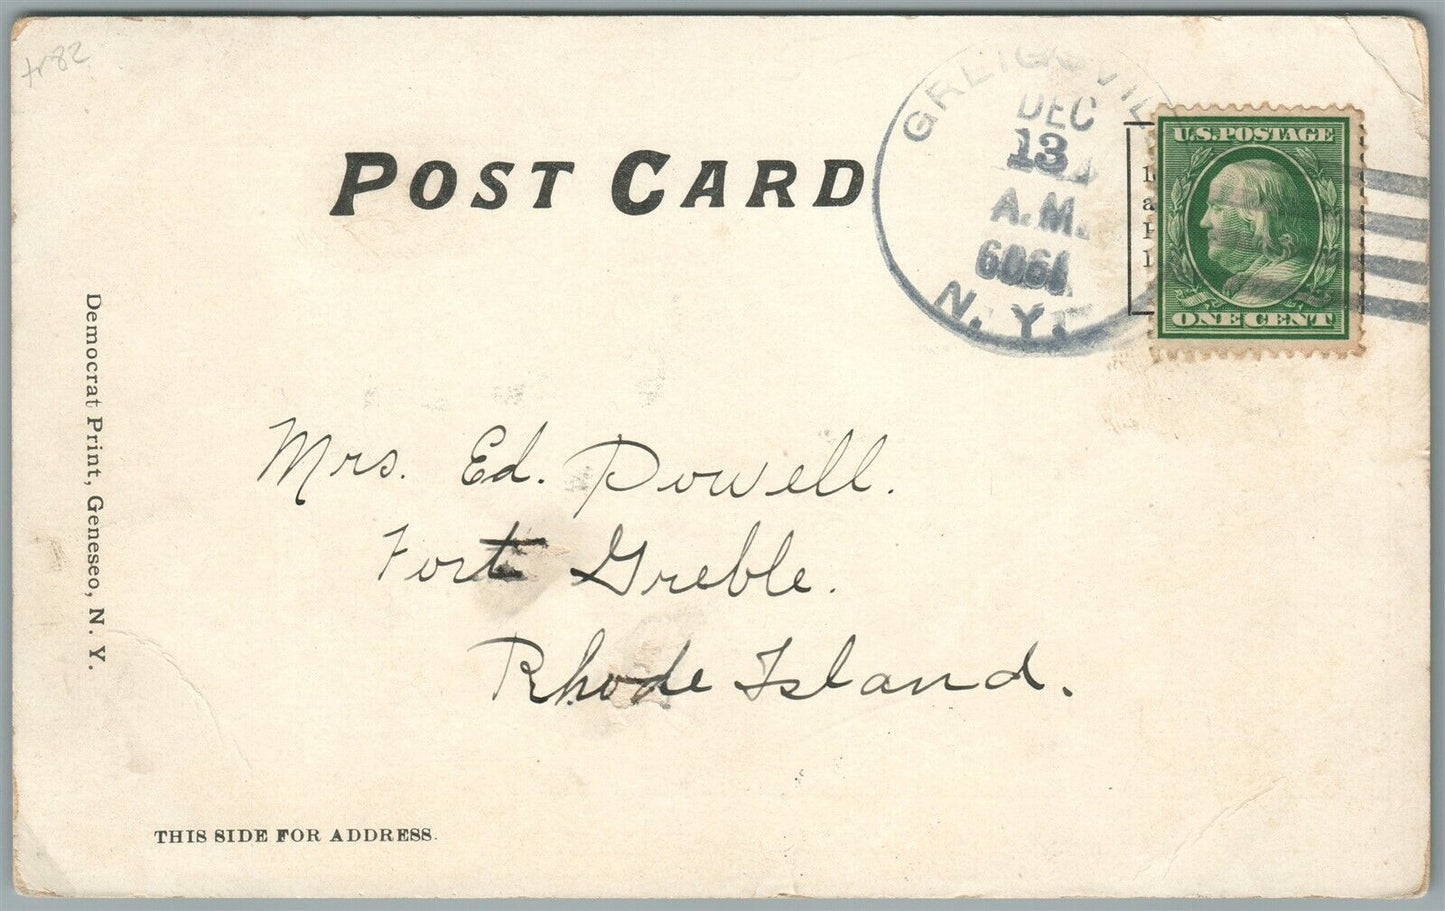 tr82
POST CARD
GREIGSVIL
DEC
13
A.M.
N. Y.
U.S. POSTAGE
ONE CENT
Democrat Print, Geneseo, N. Y.
Mrs. Ed. Powell.
Fort Greble.
Rhode Island.
THIS SIDE FOR ADDRESS.